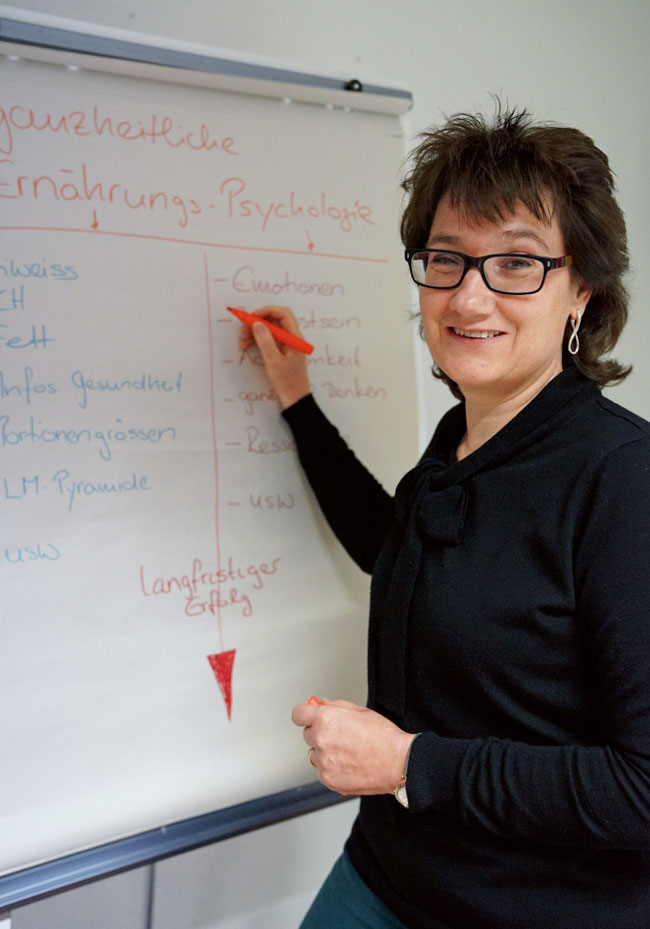 ganzheitliche
Ernährungs-Psychologie
iweiss
KH
Fett
Infos Gesundheit
Portionengrössen
LM-Pyramide
usw
- Emotionen
-
-
- Denken
-
- usw
langfristiger
Erfolg